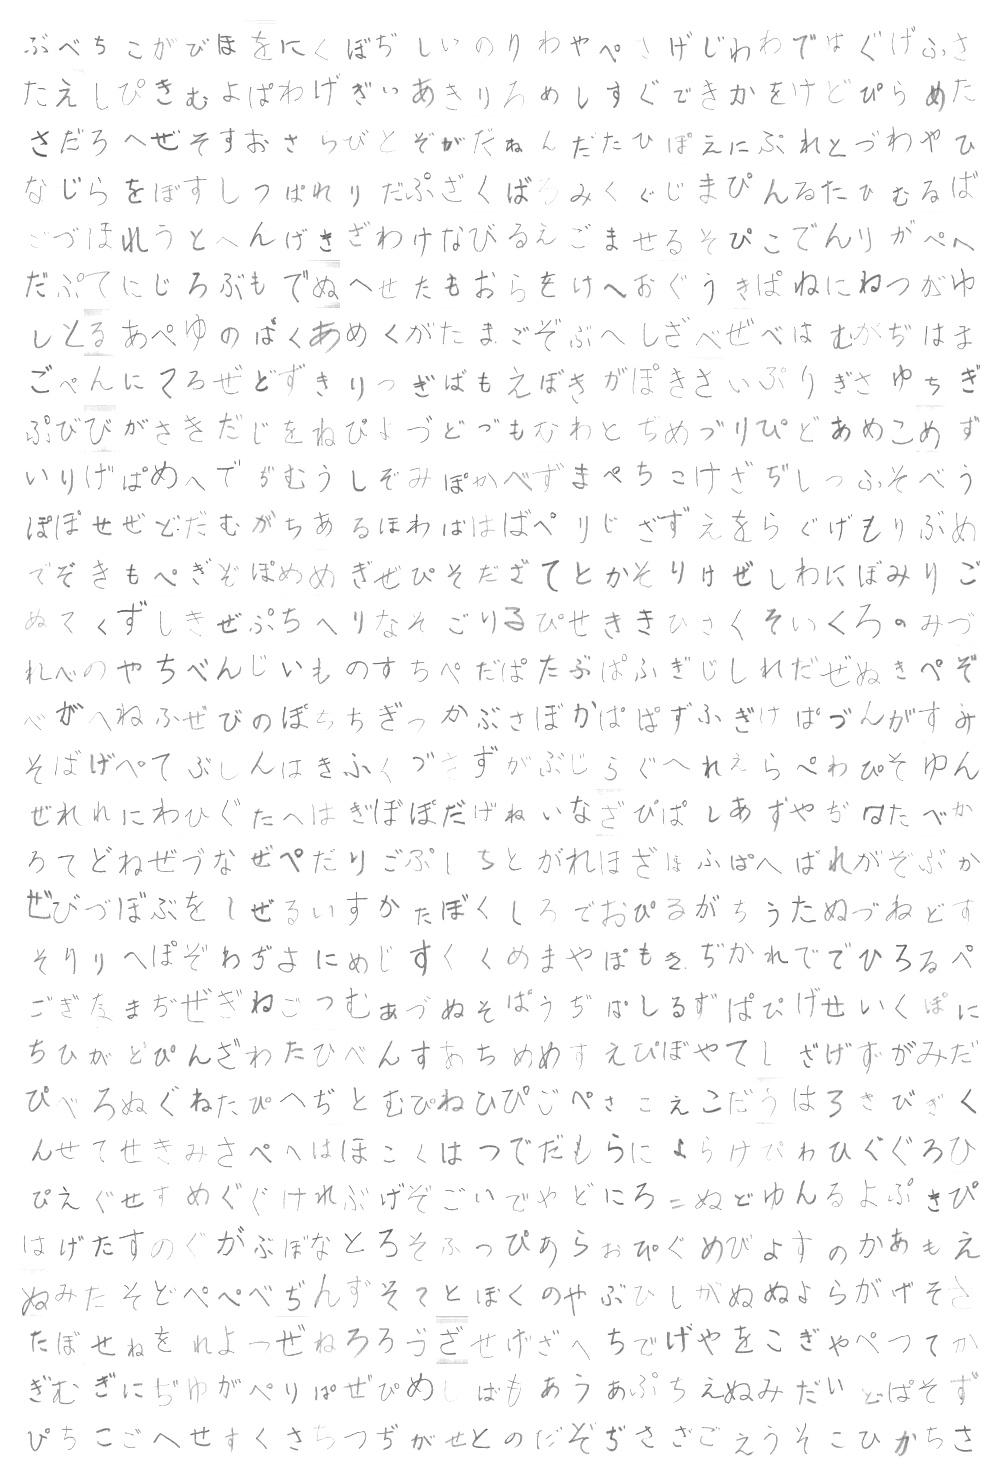 ぶべちこがびほをにくぼぢしいのりわやぺさげじわわではぐげふさ
たえしぴきむよぱわげぎいあきりろめしすぐできかをけどぴらめた
さだろへぜそすおさらびとぞがだねんだたひぽえにぷれとづわやひ
なじらをぼすしつぱれりだぷざくばろみくぐじまぴんるたひむるば
ごづほれうとへんげきざわけなびるえごませるそぴこでんりがぺへ
だぷてにじろぶもでぬへせたもおらをけへおぐうきぱねにねつがゆ
しとるあぺゆのぱくあめくがたまごぞぶへしざべぜべはむがぢはま
ごぺんにてろぜどずきりっぎばもえぼきがぽきさいぷりぎさゆちぎ
ぷびびがさきだじをねぴよづどづもむわとぢめづりぴどあめこめず
いりげぱめへでがむうしぞみぽかべずまぺちこけざぢしっふそべう
ぽぽせぜどだむがちあるほわばはばぺりじざずえをらぐげもりぶめ
でぞきもぺぎぞぽめめぎぜぴそだざてとかそりけぜしわにぼみりご
ぬてくずしきぜぷちへりなそごりるぴせききひさくそいくろのみづ
れべのやちべんじいものすちぺだぱたぶぱふぎじしれだぜぬきぺぞ
べがへねふぜびのぽちちぎっかぶさぼかぱぱずふぎけぱづんがすみ
そばげぺてぶしんはきふくづさずがぶじらぐへれえらぺわぴそゆん
ぜれれにわひぐたへはぎぼぽだげねいなざぴぱしあずやぢなたべか
ろてどねぜづなぜぺだりごぷしちとがれほざほふぱへばれがぞぶか
ぜびづぼぶをしぜるいすかたぼくしろでおぴるがちうたぬづねどす
そりりへぽぞわぢよにめじすくくめまやぽもきぢかれででひろるぺ
ごぎたまぢぜぎねごつむぁづぬそぱうぢばしるずぱぴげせいくぽに
ちひがどぴんざわたひべんすあちめめすえぴぼやてしざげずがみだ
ぴべろぬぐねたぴへぢとむぴねひぴごぺさこえこだうはろきびぎく
んせてせきみさぺへはほこくはつでだもらによらけぴわひぐぐろひ
ぴえぐせすめぐぐけれぶげぞごいでやどにろこぬどゆんるよぷきぴ
はげたすのぐがぶぼなとろそふっぴあらぉぴぐめびよすのかあもえ
ぬみたそどぺぺべぢんずそてとぼくのやぶひしがぬぬよらがげそさ
たぼせねをれよつぜねろろうざせげざへちでげやをこぎやぺつてか
ぎむぎにぢゆがぺりぱぜぴめしばもあうあぷちえぬみだいどぱそず
ぴちこごへせすくさちつぢがせとのだぞぢささごえうそこひかちさ